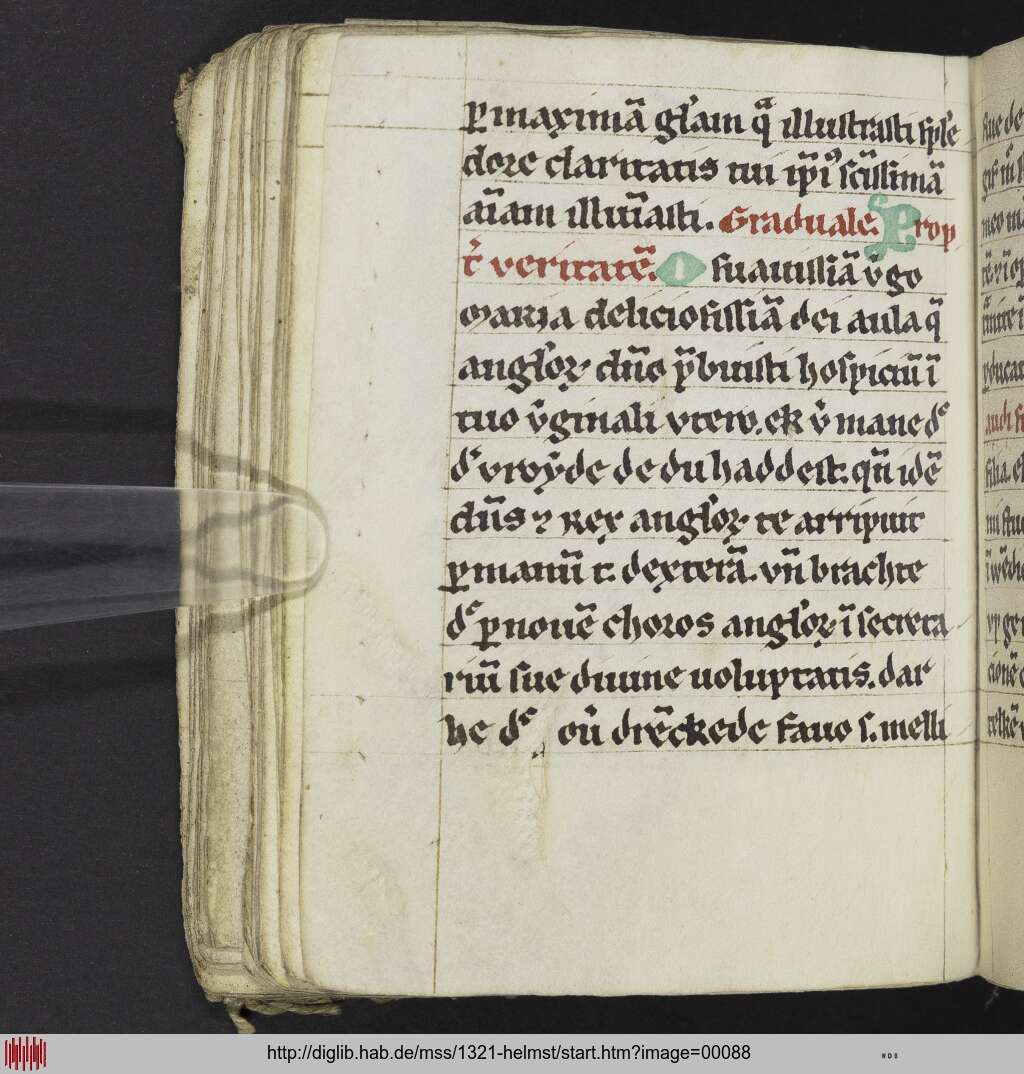 ꝑ maximā gl'am q̄ illustrasti sple
dore claritatis tui ip̄iꝰ scīssimā
aīam illuīasti. Graduale. Prop
t' veritatē. O suauissīa v̓go
maria deliciosissīā dei aula q̄
angl'oꝝ dn̄o p̄buisti hospiciū ī
tuo v̓ginali vtero. ek v̓ mane dͤ
dͤ vroy̓de de du haddest. qn̄ idē
dn̄s ⁊ rex angl'oꝝ te arripuit
ꝑ manū t. dexterā. vn̄ brachte
dͤ ꝑ nouē choros angl'oꝝ ī secreta
riū sue diuine uoluptatis. dar
he dͤ ou̓ drēckede fauo s. melli
sine de
audi fi
filia. e
http://diglib.hab.de/mss/1321-helmst/start.htm?image=00088